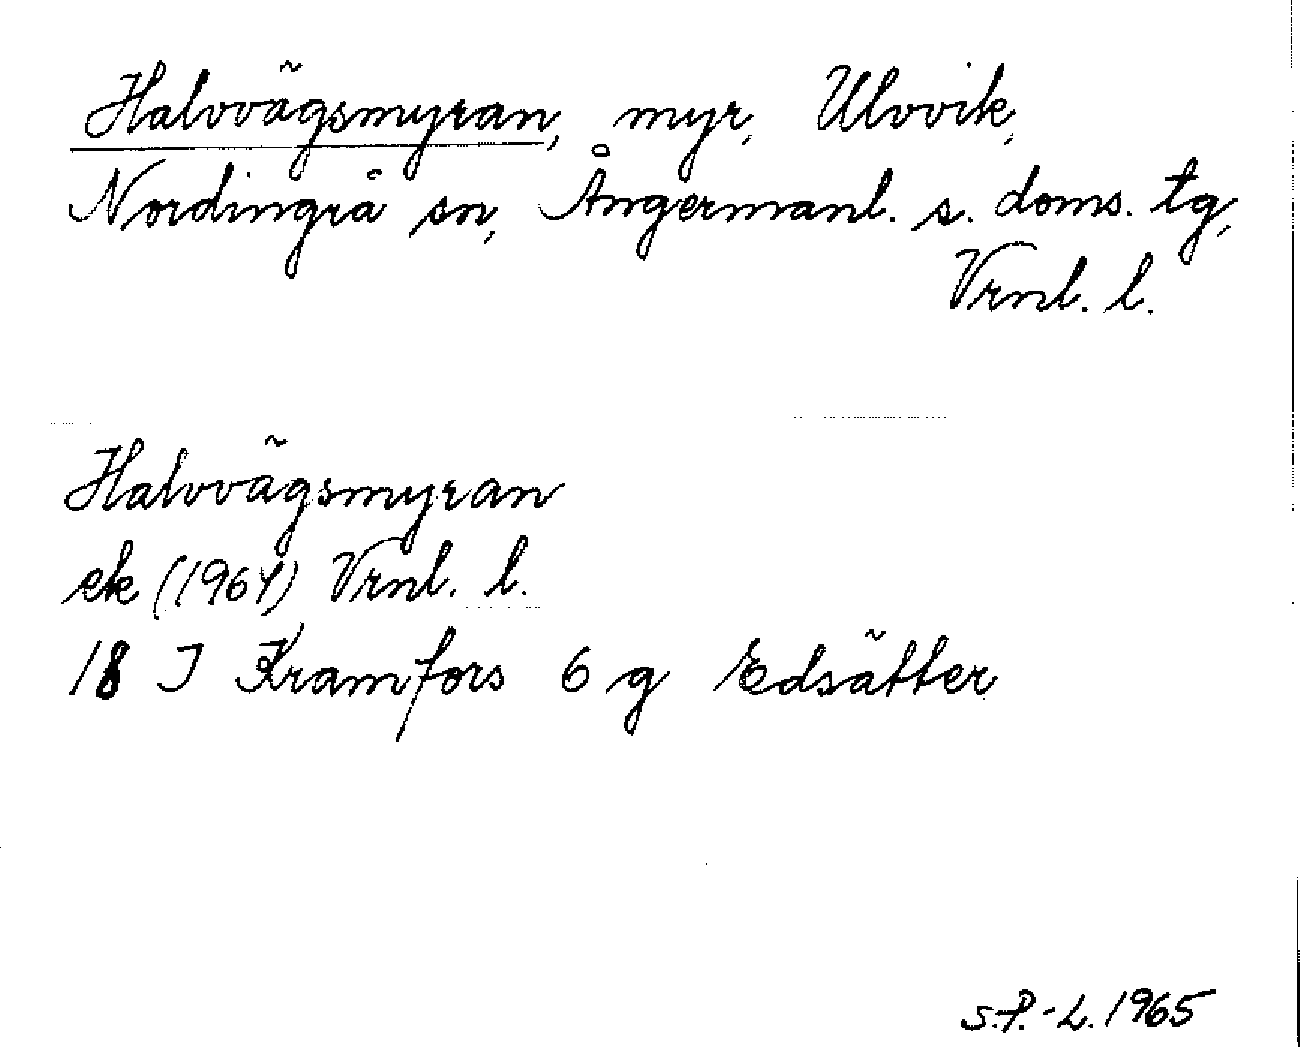 Halvvägsmyran, myr, Ulvvik,
Nordingrå sn, Ångermanl. s. doms. tg,
Vrnl. l.
Halvvägsmyran
ek (1964) Vrnl. l.
18 J Kramfors 6 g Edsätter
S.P.-L. 1965